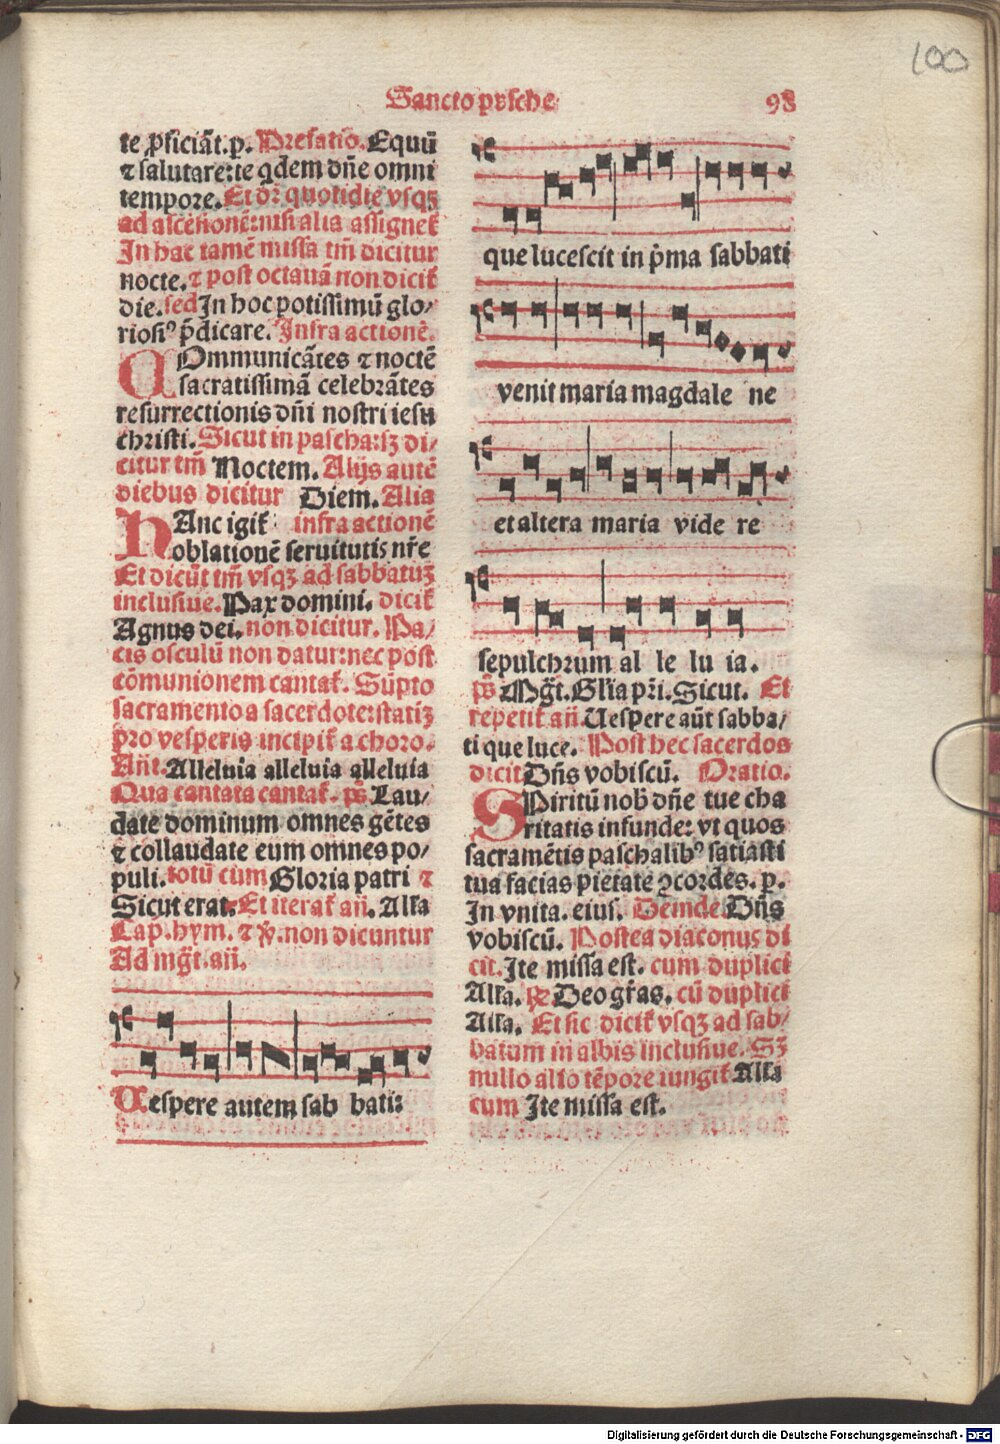 100
Sancto pasche
98
te ꝓficiāt. p. Prefatio. Equū
⁊ salutare: te qdem dn̄e omni
tempore. Et dr̄ quotidie vsqꝫ
ad ascēsionē: nisi alia assignet̉
In hac tamē missa tm̄ dicitur
nocte. ⁊ post octauā non dicit̉
die. sed In hoc potissimū glo/
riosiꝰ p̄dicare. Infra actionē.
COmmunicātes ⁊ noctē
sacratissimā celebrātes
resurrectionis dn̄i nostri iesu
christi. Sicut in pascha: sꝫ di/
citur tm̄ Noctem. Alijs autē
diebus dicitur Diem. Alia
HAnc igit̉ infra actionē
oblationē seruitutis nr̄e
Et dicūt tm̄ vsqꝫ ad sabbatuꝫ
inclusiue. Pax domini. dicit̉
Agnus dei. non dicitur. Pa/
cis osculū non datur: nec post
cōmunionem cantat̉. Sūpto
sacramento a sacerdote: statiꝫ
pro vesperis incipit̉ a choro.
Añt. Alleluia alleluia alleluia
Qua cantata cantat̉. ps̄ Lau/
date dominum omnes gētes
⁊ collaudate eum omnes po/
puli. totū cum Gloria patri ⁊
Sicut erat. Et iterat̉ añ. Alła
Cap. hym. ⁊ ℣. non dicuntur
Ad mḡt. añ.
Vespere autem sab bati:
que lucescit in p̄ma sabbati
venit maria magdale ne
et altera maria vide re
sepulchrum al le lu ia.
ps̄ Mḡt. Gl̄ia pr̄i. Sicut. Et
repetit̉ añ Uespere aūt sabba/
ti que luce. Post hec sacerdos
dicit Dn̄s vobiscū. Oratio.
SPiritū nob̄ dn̄e tue cha
ritatis infunde: vt quos
sacramētis paschalibꝰ satiasti
tua facias pietate ꝯcordes. p.
In vnita. eius. Deinde Dn̄s
vobiscū. Postea diaconus di
cit. Ite missa est. cum duplici
Alła. ℟ Deo gr̄as. cū duplici
Alła. Et sic dicit̉ vsqꝫ ad sab/
batum in albis inclusiue. Sꝫ
nullo alio tēpore iungit̉ Alła
cum Ite missa est.
Digitalisierung gefördert durch die Deutsche Forschungsgemeinschaft - DFG